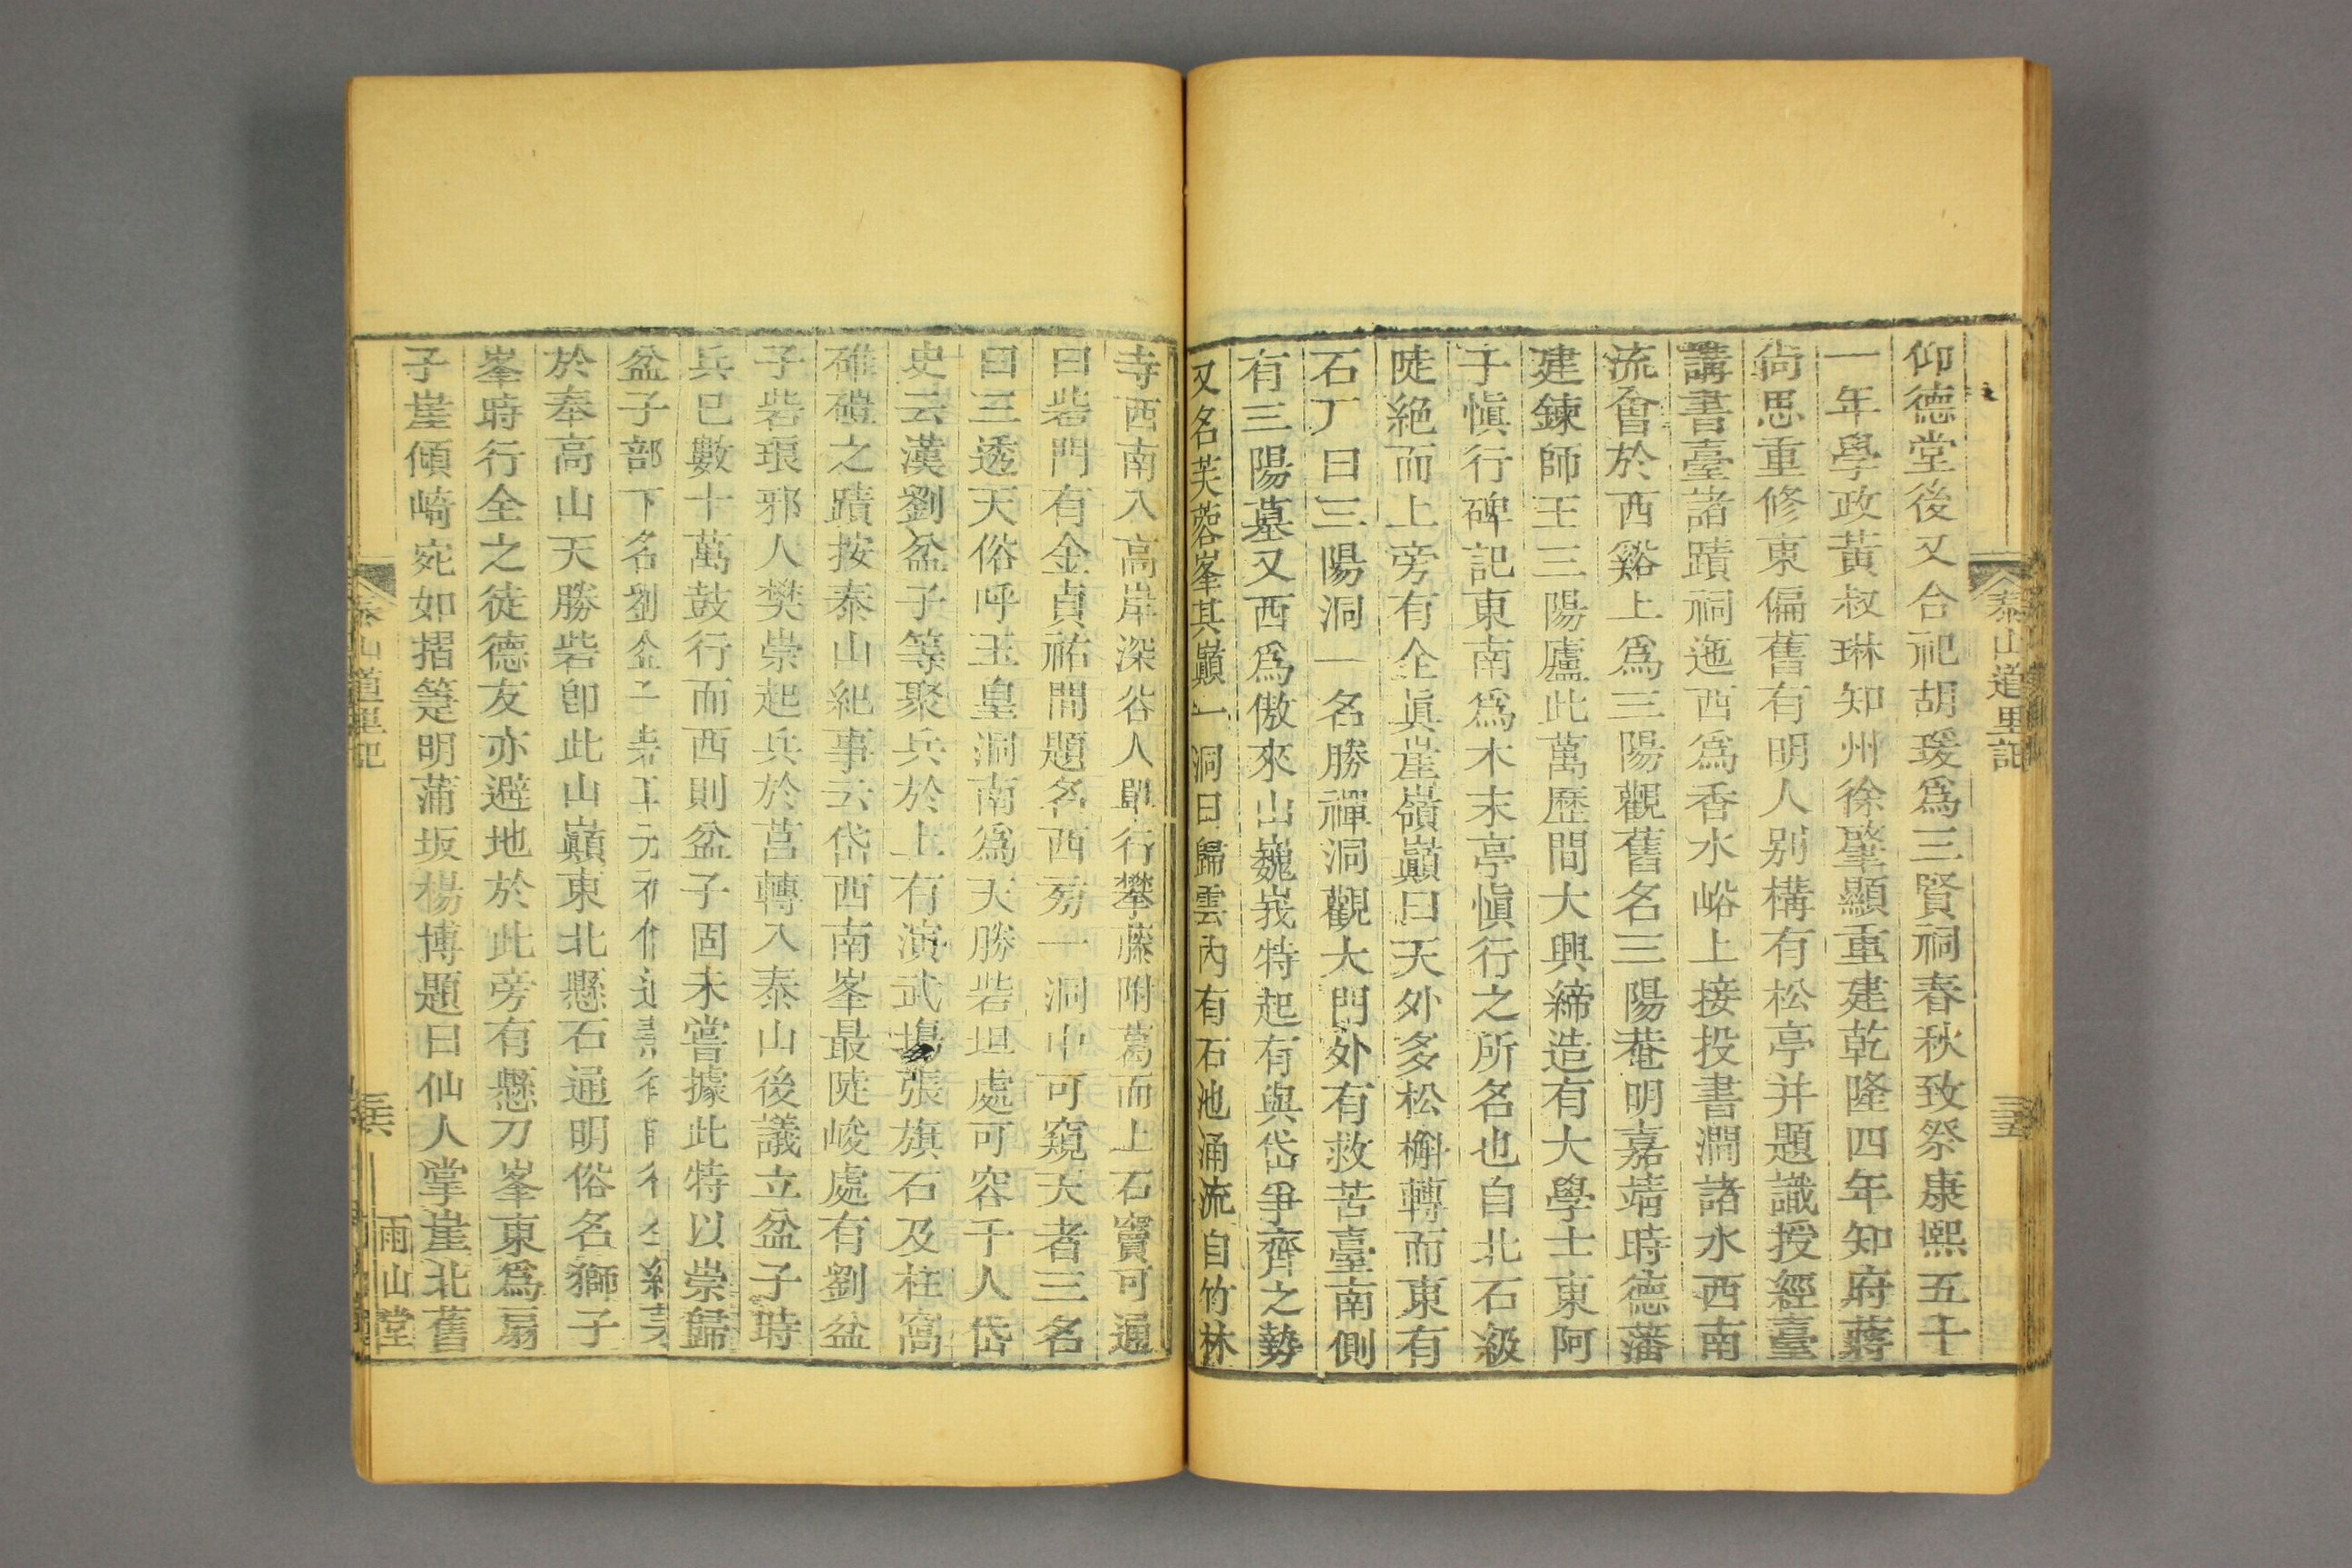 泰山道里記
三五
仰德堂後又合祀胡瑗爲三賢祠春秋致祭康熙五十
一年學政黃叔琳知州徐肇顯重建乾隆四年知府蔣
尙思重修東偏舊有明人别構有松亭并題識授經臺
講書臺諸蹟祠迤西爲香水峪上接投書澗諸水西南
流會於西谿上爲三陽觀舊名三陽菴明嘉靖時德藩
建鍊師王三陽廬此萬歷間大興締造有大學士東阿
子愼行碑記東南爲木末亭愼行之所名也自北石級
陡絶而上旁有全眞崖嶺巔曰天外多松槲轉而東有
石丁曰三陽洞一名勝禪洞觀大門外有救苦臺南側
有三陽墓又西爲傲來山巍峩特起有與岱爭齊之勢
又名芙蓉峯其巔一洞曰歸雲內有石池涌流自竹林
寺西南入高岸深谷人單行攀藤附葛而上石竇可通
曰砦門有金貞祐間題名西旁一洞中可窺天者三名
曰三透天俗呼玉皇洞南爲天勝砦坦處可容千人岱
史云漢劉盆子等聚兵於上有演武塲張旗石及柱窩
碓磑之蹟按泰山紀事云岱西南峯最陡峻處有劉盆
子砦琅邪人樊崇起兵於莒轉入泰山後議立盆子時
兵已數十萬鼓行而西則盆子固未嘗據此特以崇歸
盆子部下名劉盆子
於奉高山天勝砦卽此山巔東北懸石通明俗名獅子
峯時行全之徒德友亦避地於此旁有懸刀峯東爲扇
子崖傾崎宛如摺箑明蒲坂楊博題曰仙人掌崖北舊
泰山道里記
三六
雨山堂